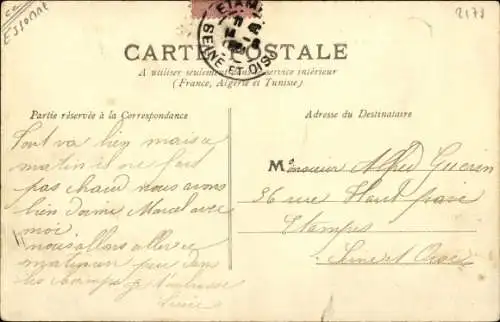 Essonne
2178
ETAMPES
SEINE ET OISE
CARTE POSTALE
A utiliser seulement dans le service intérieur
(France, Algérie et Tunisie)
Partie réservée à la Correspondance
Adresse du Destinataire
Tout va bien mais ce
matin il ne fait
pas chaud nous avons
bien dormi Marcel avec
moi
nous allons aller ce
matin un peu dans
les champs je t'embrasse
Monsieur Alfred Guerin
36 rue Haut pavé
Etampes
Seine et Oise